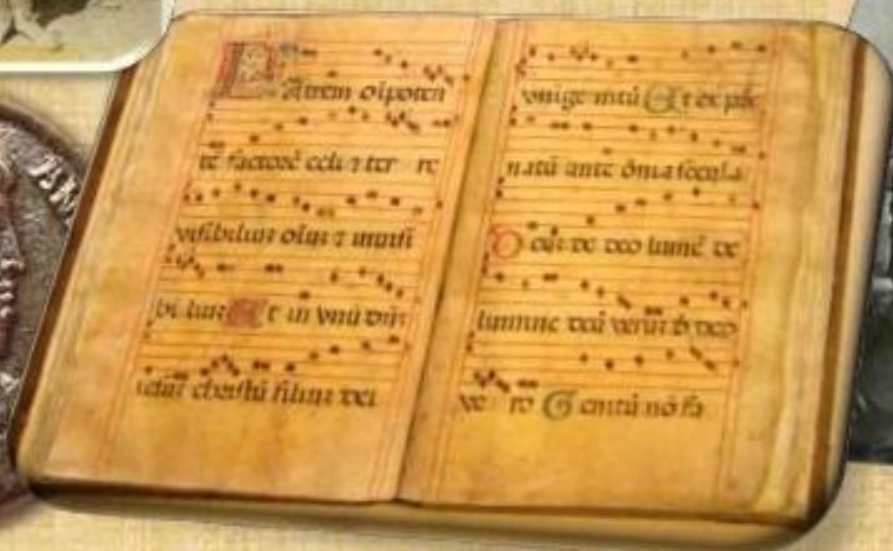 PAtrem oīpoten
tē factorē celi ⁊ ter re
visibiliuz oīuz ⁊ invisi
bi liuz Et in vnū dn̄z
iesuz christū filiuz dei
vnige nitū Et ex pr̄e
natū ante ōnia secula
Deuz de deo lumē de
lumine deū veruz d̄ deo
ve ro Genitū nō fa